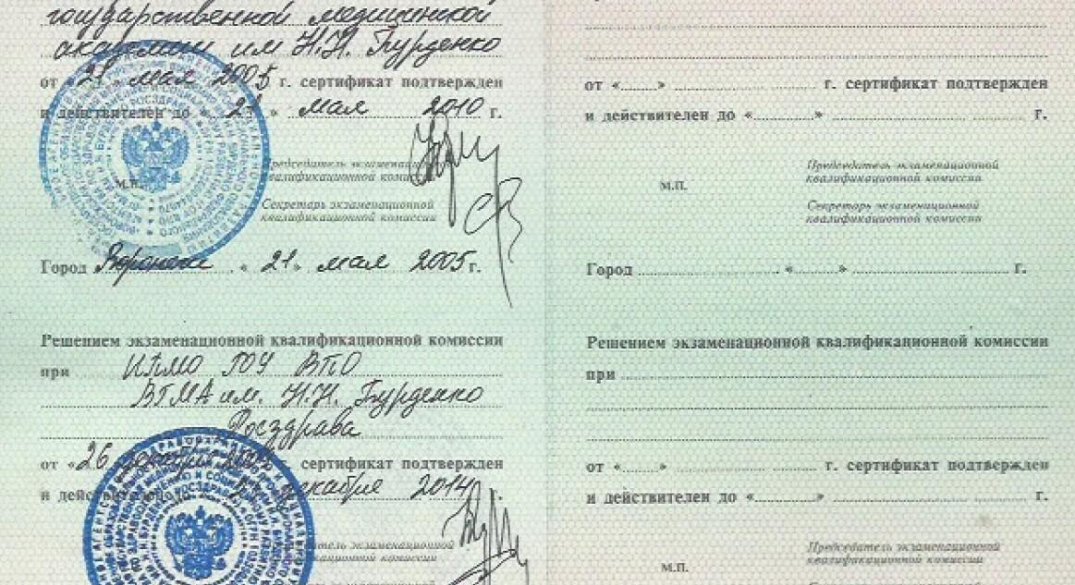 государственной медицинской
академии им Н.Н. Бурденко
от «21» мая 2005 г. сертификат подтвержден
и действителен до «21» мая 2010 г.
Председатель экзаменационной
квалификационной комиссии
М.П.
Секретарь экзаменационной
квалификационной комиссии
Город Воронеж «21» мая 2005 г.
Решением экзаменационной квалификационной комиссии
при ИПМО ГОУ ВПО
ВГМА им. Н.Н. Бурденко
Росздрава
от «26 г. сертификат подтвержден
и декабря 2014 г.
экзаменационной
квалификационной комиссии
от «» г. сертификат подтвержден
и действителен до «» г.
Председатель экзаменационной
квалификационной комиссии
М.П.
Секретарь экзаменационной
квалификационной комиссии
Город «» г.
Решением экзаменационной квалификационной комиссии
при
от «» г. сертификат подтвержден
и действителен до «» г.
Председатель экзаменационной
квалификационной комиссии
М.П.